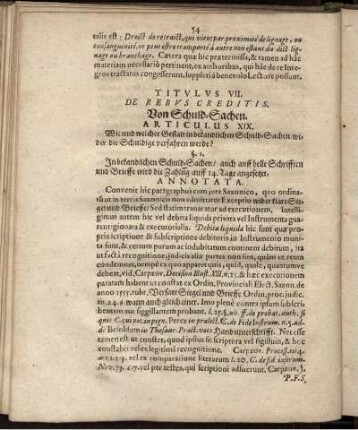 54
talis est: Droict de retraict, qui vient par proximité de lignage, ou
consanguinité, ne peut estre transporté à autre non estant du dict lignage
ou branchage. Cætera quæ hic prætermissa, & tamen ad hæc
materiam necessario pertinent, ex authoribus, qui hac de re integros
tractatus congesserunt, suppleri à benevolo Lectore possunt.
TITVLVS VII.
DE REBVS CREDITIS.
Von Schuld-Sachen.
ARTICULUS XIX.
Wie und welcher Gestalt in bekandlichen Schuld-Sachen wider
die Schuldige verfahren werde?
§. 1.
In bekandlichen Schuld-Sachen / auch auff helle Schrifften
und Brieffe wird die Zahlung auff 14. Tage angesetzet.
ANNOTATA.
Convenit hic paragraphus cum jure Saxonico, quo ordinatum
in terris Saxonicis
Siegel und Brieffe: Sed statim veniatur ad executionem, Intelligimus
autem hic vel debita liquida privata vel Instrumenta guarentigionata
& executorialia. Debita liquida hic sunt quæ propria
scriptione & subscriptione debitoris in Instrumento munita
sunt, & certum purum ac indubitatum continent debitum, ita
ut facta recognitione, judicis aliæ partes non sint, quàm ut reum
condemnet, nempe ex quo apparet quis, quid, quale, quantumve
debeat, vid. Carpzov. Decision Illust. XII, n. 21. & hæc executionem
paratam habent ut constat ex Ordin. Provinciali Elect. Saxon. de
anno 1555. rubr. Versatz Siegel und Brieffe Ordin. proc. judic.
tit. 24. §. wann auch gleich einer. Imo plenè contra ipsum subscribentem
aut sigillantem probant. l. 26. §. ult. ff. de probat. auth. si
quis C. qui pot. in pign. Perez in prælect. C. de Fide Instrum. n. 5. add.
Besoldum in Thesaur. Pract. voce Handunterschrifft. Necesse
tamen est ut constet, quod ipsius sit scriptura vel sigillum, & hæc
constabit vel ex legitimâ recognitione. Carpzov. Process. tit. 4.
vel ex comparatione literarum l. 20. C. de fid. instrum.
Nov. 73. c. 7. vel per testes, qui scriptioni adfuerunt. Carpzov. J.
P. F. S.